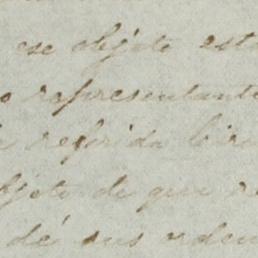 ese objeto esta
o representante
referida
objeto de que
dé sus orden